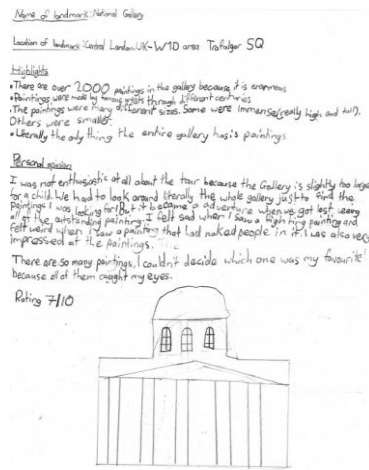 Name of landmark: National Gallery
Location of landmark: Central London, UK-W1D area Trafalgar SQ
Highlights
• There are over 2000 paintings in the gallery because it is enormous
• Paintings were made by famous artists through different centuries
• The paintings were many different sizes. Some were immense (really high and tall).
Others were smaller.
• Literally the only thing the entire gallery has is paintings
Personal opinion
I was not enthusiastic at all about the tour because the Gallery is slightly too large
for a child. We had to look around literally the whole gallery just to find the
paintings I was looking for! But it became a adventure when we got lost, seeing
all of the outstanding painting. I felt sad when I saw a fighting painting and
felt weird when I saw a painting that had naked people in it. I was also very
impressed at the paintings.
There are so many paintings, I couldn't decide which one was my favourite!
because all of them caught my eyes.
Rating 7/10